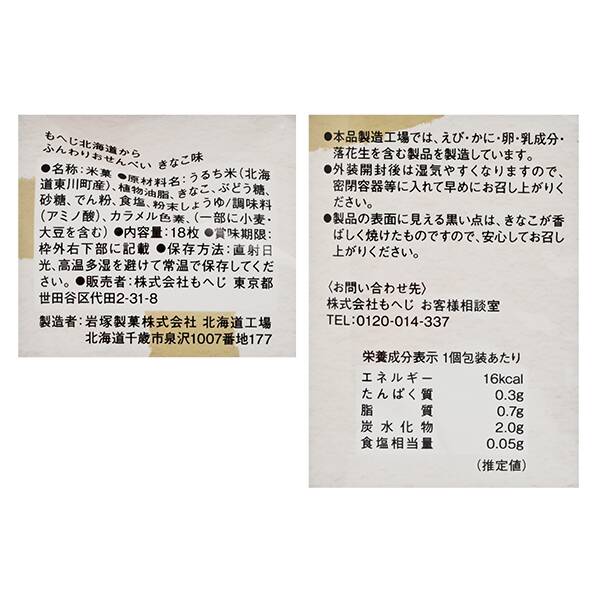 もへじ北海道から
ふんわりおせんべい きなこ味
●名称:米菓 ●原材料名:うるち米(北海
道東川町産)、植物油脂、きなこ、ぶどう糖、
砂糖、でん粉、食塩、粉末しょうゆ/調味料
(アミノ酸)、カラメル色素、(一部に小麦・
大豆を含む) ●内容量:18枚 ●賞味期限:
枠外右下部に記載 ●保存方法:直射日
光、高温多湿を避けて常温で保存してくださ
い。●販売者:株式会社もへじ 東京都
世田谷区代田2-31-8
製造者:岩塚製菓株式会社 北海道工場
北海道千歳市泉沢1007番地177
●本品製造工場では、えび・かに・卵・乳成分・
落花生を含む製品を製造しています。
●外装開封後は湿気やすくなりますので、
密閉容器等に入れて早めにお召し上がりく
ださい。
●製品の表面に見える黒い点は、きなこが香
ばしく焼けたものですので、安心してお召し
上がりください。
〈お問い合わせ先〉
株式会社もへじ お客様相談室
TEL:0120-014-337
栄養成分表示 1個包装あたり
エネルギー 16kcal
たんぱく質 0.3g
脂質 0.7g
炭水化物 2.0g
食塩相当量 0.05g
(推定値)